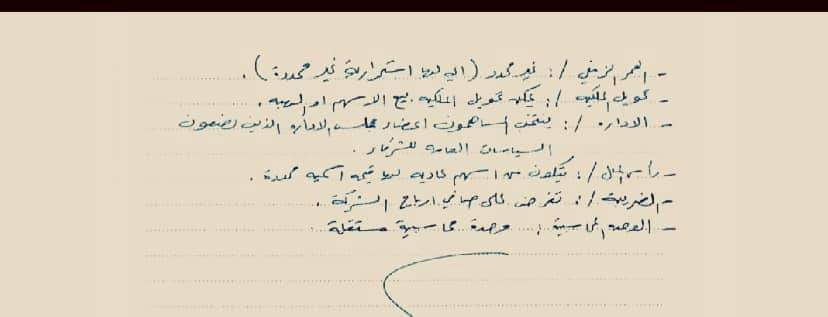 - العمر الزمني /: غير محدد (اي لها استمرارية غير محددة).
- تحويل الملكيه /: يمكن تحويل الملكيه ببيع الاسهم او الهبه.
- الاداره /: ينتخب المساهمون اعضاء مجلس الاداره الذين يضعون
السياسات العامه للشركه.
- رأس المال /: يتكون من اسهم عاديه لها قيمه اسميه محددة.
- الضريبة /: تفرض على صافي ارباح الشركة.
- الوحده المحاسبية: وحدة محاسبية مستقلة